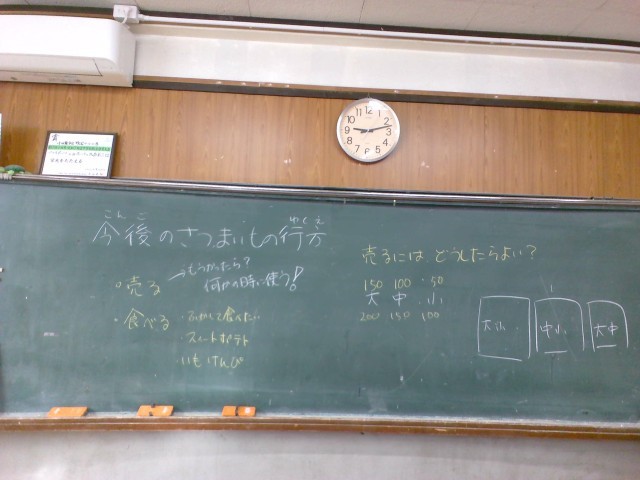 こんご
今後のさつまいもの行方
ゆくえ
・売る
→もうかったら?
何かの時に使う!
・食べる
・ふかして食べたい
・スイートポテト
・いもけんぴ
売るには どうしたらよい?
150 100 50
大 中 小
200 150 100
大小
中小
大中
12
1
2
3
4
5
7
8
9
10
11